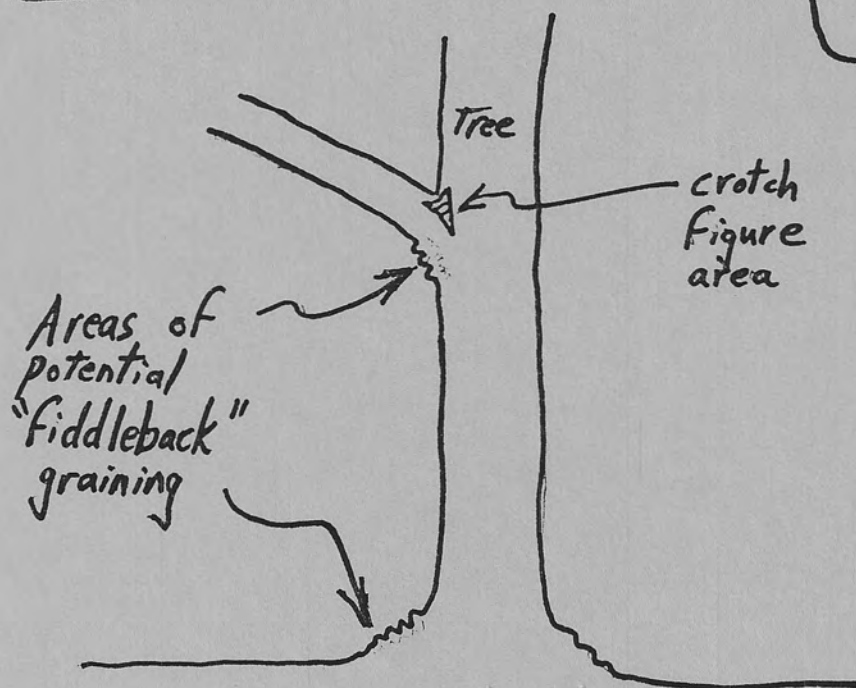 Tree
crotch
figure
area
Areas of
potential
"fiddleback"
graining